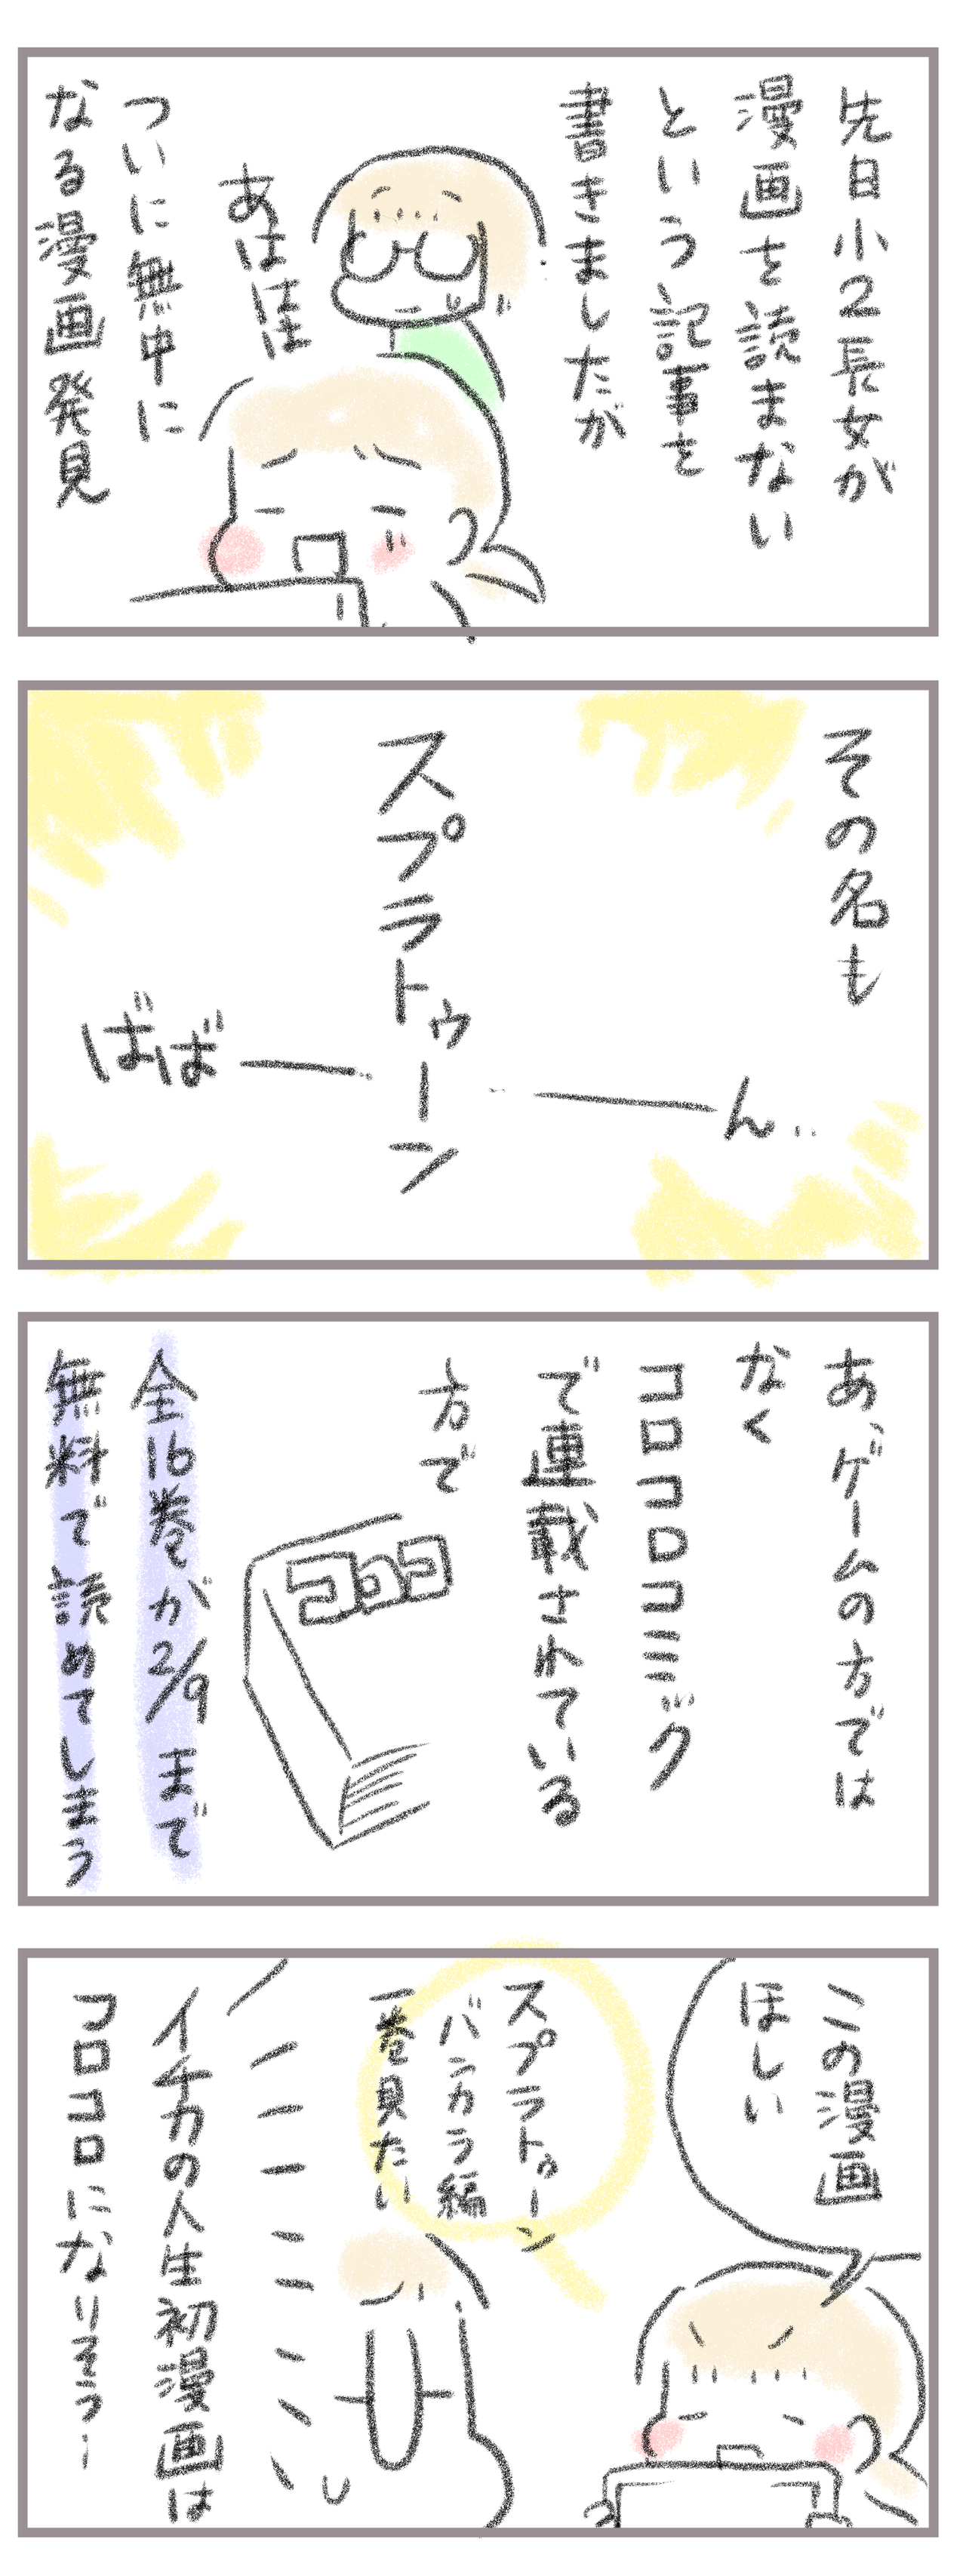 先日小2長女が
漫画を読まない
という記事を
書きましたが
あは
ついに無中に
なる漫画発見
その名も
スプラトゥーン
ばばーーん
あ、ゲームの方では
なく
コロコロコミック
で連載されている
方で
コロコ
全16巻が2/9まで
無料で読めてしまう
この漫画
ほしい
スプラトゥーン
バンカラ編
一巻見たい
イチカの人生初漫画は
コロコロになりそう!